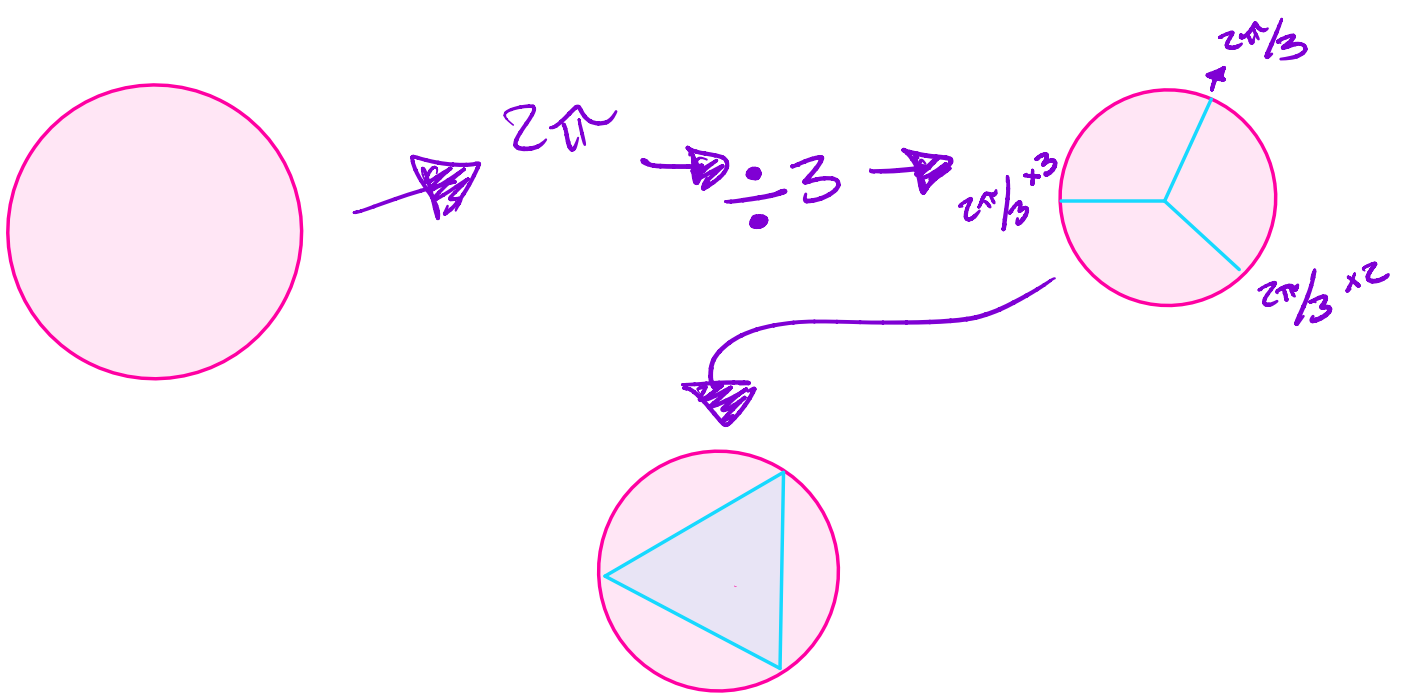 2π
÷ 3
2π/3
2π/3 ×3
2π/3 ×2